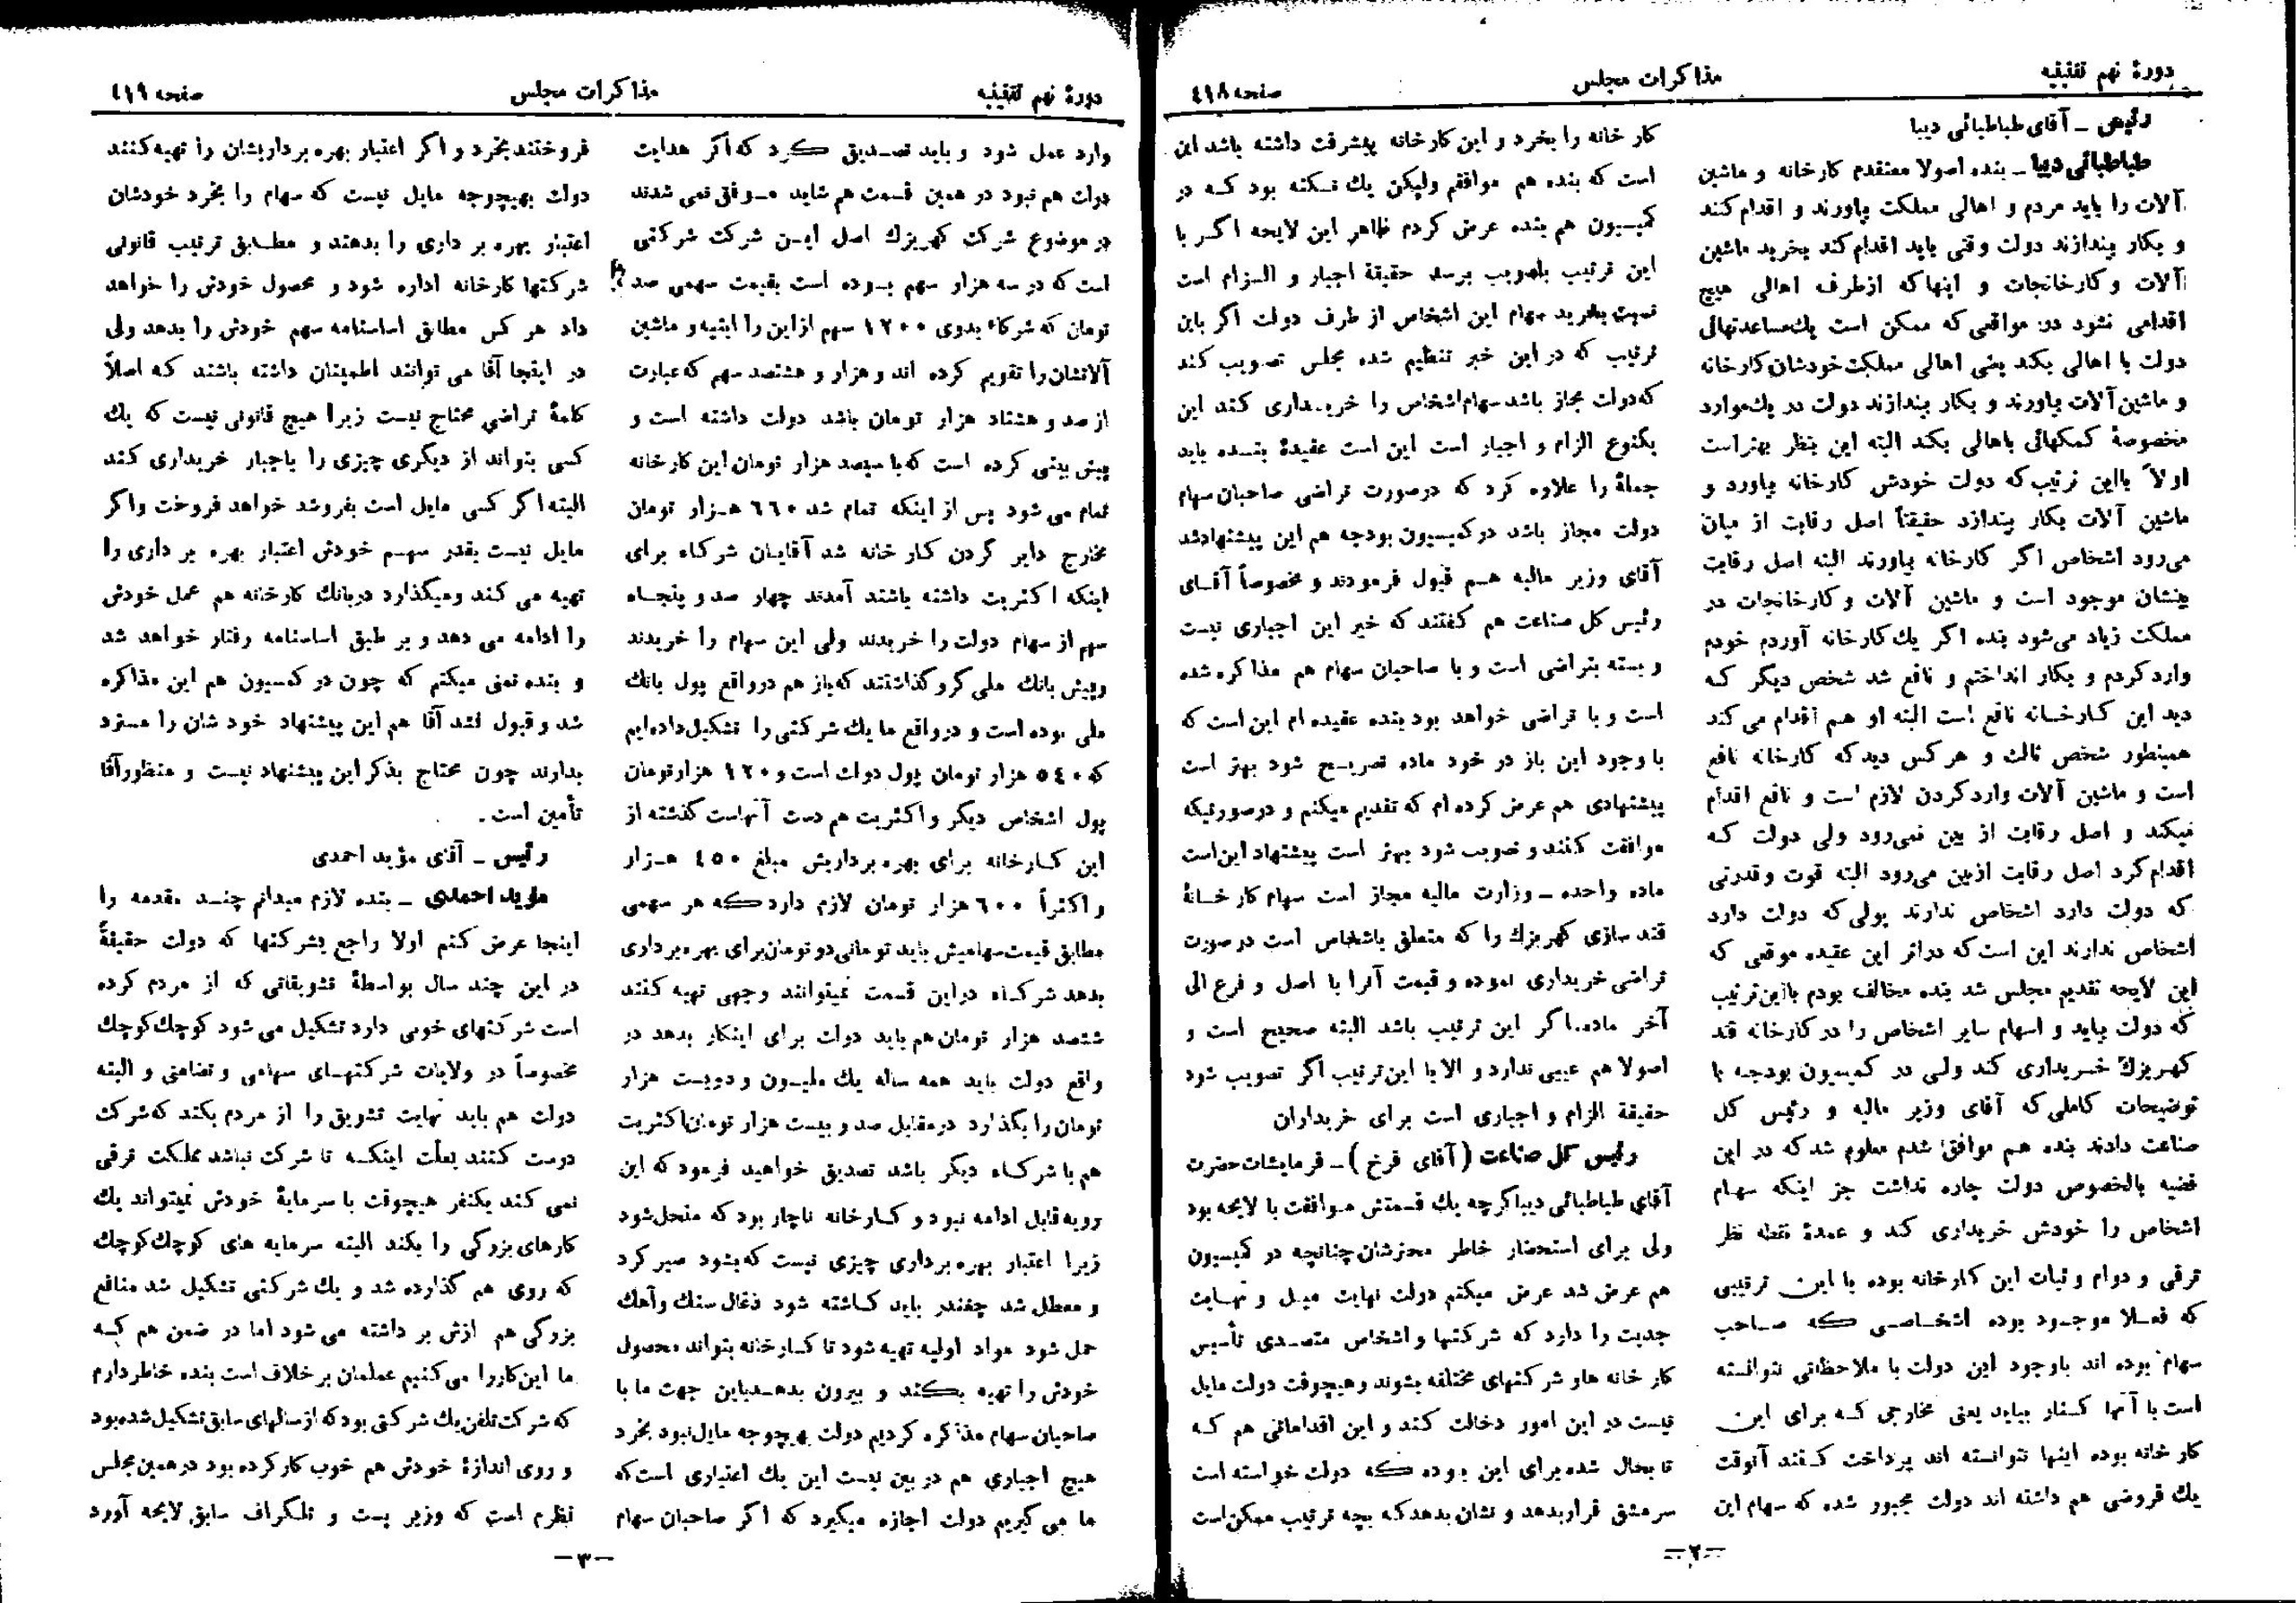 دورهٔ نهم تقنینیه
مذاکرات مجلس
صفحه ۴۱۸
رئیس ــ آقای طباطبائی دیبا
طباطبائی دیبا ــ بنده اصولا معتقدم کارخانه و ماشین
آلات را باید مردم و اهالی مملکت بیاورند و اقدام کنند
و بکار بیندازند دولت وقتی باید اقدام کند بخرید ماشین
آلات و کارخانجات و اینها که ازطرف اهالی هیچ
اقدامی نشود در مواقعی که ممکن است یك مساعدتهائی
دولت با اهالی بکند یعنی اهالی مملکت خودشان کارخانه
و ماشین آلات بیاورند و بکار بیندازند دولت در یك موارد
مخصوصهٔ کمکهائی باهالی بکند البته این بنظر بهتر است
اولاً بااین ترتیب که دولت خودش کارخانه بیاورد و
ماشین آلات بکار بیندازد حقیقتاً اصل رقابت از میان
می‌رود اشخاص اگر کارخانه بیاورند البته اصل رقابت
بینشان موجود است و ماشین آلات و کارخانجات در
مملکت زیاد می‌شود بنده اگر یك کارخانه آوردم خودم
وارد کردم و بکار انداختم و نافع شد شخص دیگر که
دید این کارخانه نافع است البته او هم اقدام می کند
همینطور شخص ثالث و هر کس دید که کارخانه نافع
است و ماشین آلات وارد کردن لازم است و نافع اقدام
میکند و اصل رقابت از بین نمی‌رود ولی دولت که
اقدام کرد اصل رقابت ازبین می‌رود البته قوت وقدرتی
که دولت دارد اشخاص ندارند پولی که دولت دارد
اشخاص ندارند این است که دراثر این عقیده موقعی که
این لایحه تقدیم مجلس شد بنده مخالف بودم بااین ترتیب
که دولت بیاید و اسهام سایر اشخاص را در کارخانه قند
کهریزك خریداری کند ولی در کمیسیون بودجه با
توضیحات کاملی که آقای وزیر مالیه و رئیس کل
صناعت دادند بنده هم موافق شدم معلوم شد که در این
قضیه بالخصوص دولت چاره نداشت جز اینکه سهام
اشخاص را خودش خریداری کند و عمدهٔ نقطه نظر
ترقی و دوام و ثبات این کارخانه بوده با این ترتیبی
که فعلا موجود بوده اشخاصی که صاحب
سهام بوده اند باوجود این دولت با ملاحظاتی نتوانسته
است با آنها کنار بیاید یعنی مخارجی که برای این
کارخانه بوده اینها نتوانسته اند پرداخت کنند آنوقت
یك قروضی هم داشته اند دولت مجبور شده که سهام این
کار خانه را بخرد و این کارخانه پیشرفت داشته باشد این
است که بنده هم موافقم ولیکن یك نکته بود که در
کمیسیون هم بنده عرض کردم ظاهر این لایحه اگر با
این ترتیب بتصویب برسد حقیقة اجبار و الزام است
نسبت بخرید سهام این اشخاص از طرف دولت اگر باین
ترتیب که در این خبر تنظیم شده مجلس تصویب کند
که دولت مجاز باشد سهام اشخاص را خریداری کند این
یکنوع الزام و اجبار است این است عقیدهٔ بنده باید
جملهٔ را علاوه کرد که درصورت تراضی صاحبان سهام
دولت مجاز باشد در کمیسیون بودجه هم این پیشنهادشد
آقای وزیر مالیه هم قبول فرمودند و مخصوصاً آقای
رئیس کل صناعت هم گفتند که خیر این اجباری نیست
و بسته بتراضی است و با صاحبان سهام هم مذاکره شده
است و با تراضی خواهد بود بنده عقیده ام این است که
با وجود این باز در خود ماده تصریح شود بهتر است
پیشنهادی هم عرض کرده ام که تقدیم میکنم و درصورتیکه
موافقت کنند و تصویب شود بهتر است پیشنهاد این است
ماده واحده ــ وزارت مالیه مجاز است سهام کارخانهٔ
قند سازی کهریزك را که متعلق باشخاص است درصورت
تراضی خریداری نموده و قیمت آنرا با اصل و فرع الی
آخر ماده. اگر این ترتیب باشد البته صحیح است و
اصولا هم عیبی ندارد و الا با این ترتیب اگر تصویب شود
حقیقة الزام و اجباری است برای خریداران
رئیس کل صناعت (آقای فرخ) ــ فرمایشات حضرت
آقای طباطبائی دیبا گرچه یك قسمتش موافقت با لایحه بود
ولی برای استحضار خاطر محترمشان چنانچه در کمیسیون
هم عرض شد عرض میکنم دولت نهایت میل و نهایت
جدیت را دارد که شرکتها و اشخاص متصدی تأسیس
کارخانه ها و شرکتهای مختلفه بشوند و هیچوقت دولت مایل
نیست در این امور دخالت کند و این اقداماتی هم که
تا بحال شده برای این بوده که دولت خواسته است
سرمشق قرار بدهد و نشان بدهد که بچه ترتیب ممکن است
ــ۲ــ
دورهٔ نهم تقنینیه
مذاکرات مجلس
صفحه ۴۱۹
وارد عمل شود و باید تصدیق کرد که اگر هدایت
دولت هم نبود در همین قسمت هم شاید موفق نمی شدند
در موضوع شرکت کهریزك اصل این شرکت شرکتی
است که در سه هزار سهم بوده است بقیمت سهمی صد
تومان که شرکاء بدوی ۱۲۰۰ سهم ازاین را ابنیه و ماشین
آلاتشان را تقویم کرده اند و هزار و هشتصد سهم که عبارت
از صد و هشتاد هزار تومان باشد دولت داشته است و
پیش بینی کرده است که با سیصد هزار تومان این کارخانه
تمام می شود پس از اینکه تمام شد ۶۶۰ هزار تومان
مخارج دایر کردن کارخانه شد آقایان شرکاء برای
اینکه اکثریت داشته باشند آمدند چهار صد و پنجاه
سهم از سهام دولت را خریدند ولی این سهام را خریدند
و پیش بانك ملی گرو گذاشتند که باز هم درواقع پول بانك
ملی بوده است و درواقع ما یك شرکتی را تشکیل داده ایم
که ۵۴۰ هزار تومان پول دولت است و ۱۲۰ هزار تومان
پول اشخاص دیگر و اکثریت هم دست آنهاست گذشته از
این کارخانه برای بهره برداریش مبلغ ۴۵۰ هزار
و اکثراً ۶۰۰ هزار تومان لازم دارد که هر سهمی
مطابق قیمت سهامیش باید تومانی دو تومان برای بهره برداری
بدهد شرکاء دراین قسمت نمیتوانند وجهی تهیه کنند
ششصد هزار تومان هم باید دولت برای اینکار بدهد در
واقع دولت باید همه ساله یك ملیون و دویست هزار
تومان را بگذارد درمقابل صد و بیست هزار تومان اکثریت
هم با شرکاء دیگر باشد تصدیق خواهید فرمود که این
رویه قابل ادامه نبود و کارخانه ناچار بود که منحل شود
زیرا اعتبار بهره برداری چیزی نیست که بشود صبر کرد
و معطل شد چغندر باید کاشته شود ذغال سنك و آهك
حمل شود مواد اولیه تهیه شود تا کارخانه بتواند محصول
خودش را تهیه بکند و بیرون بدهد باین جهت ما با
صاحبان سهام مذاکره کردیم دولت بهیچوجه مایل نبود بخرد
هیچ اجباری هم در بین نیست این یك اعتباری است که
ما می گیریم دولت اجازه میگیرد که اگر صاحبان سهام
فروختند بخرد و اگر اعتبار بهره برداریشان را تهیه کنند
دولت بهیچوجه مایل نیست که سهام را بخرد خودشان
اعتبار بهره برداری را بدهند و مطابق ترتیب قانونی
شرکتها کارخانه اداره شود و محصول خودش را خواهد
داد هر کس مطابق اساسنامه سهم خودش را بدهد ولی
در اینجا آقا می توانند اطمینان داشته باشند که اصلاً
کلمهٔ تراضی محتاج نیست زیرا هیچ قانونی نیست که یك
کسی بتواند از دیگری چیزی را باجبار خریداری کند
البته اگر کسی مایل است بفروشد خواهد فروخت و اگر
مایل نیست بقدر سهم خودش اعتبار بهره برداری را
تهیه می کند و میگذارد دربانك کارخانه هم عمل خودش
را ادامه می دهد و بر طبق اساسنامه رفتار خواهد شد
و بنده تمنی میکنم که چون در کمسیون هم این مذاکره
شد و قبول نشد آقا هم این پیشنهاد خودشان را مسترد
بدارند چون محتاج بذکر این پیشنهاد نیست و منظور آقا
تأمین است.
رئیس ــ آقای مؤید احمدی
مؤید احمدی ــ بنده لازم میدانم چند مقدمه را
اینجا عرض کنم اولا راجع بشرکتها که دولت حقیقةً
در این چند سال بواسطهٔ تشویقاتی که از مردم کرده
است شرکتهای خوبی دارد تشکیل می شود کوچك کوچك
مخصوصاً در ولایات شرکتهای سهامی و تضامنی و البته
دولت هم باید نهایت تشویق را از مردم بکند که شرکت
درست کنند بعلت اینکه تا شرکت نباشد مملکت ترقی
نمی کند یکنفر هیچوقت با سرمایهٔ خودش نمیتواند یك
کارهای بزرگی را بکند البته سرمایه های کوچك کوچك
که روی هم گذارده شد و یك شرکتی تشکیل شد منافع
بزرگی هم ازش بر داشته می شود اما در ضمن هم که
ما این کاررا می کنیم عملمان بر خلاف است بنده خاطر دارم
که شرکت تلفن یك شرکتی بود که از سالهای سابق تشکیل شده بود
و روی اندازهٔ خودش هم خوب کار کرده بود درهمین مجلس
نظرم است که وزیر پست و تلگراف سابق لایحه آورد
ــ۳ــ